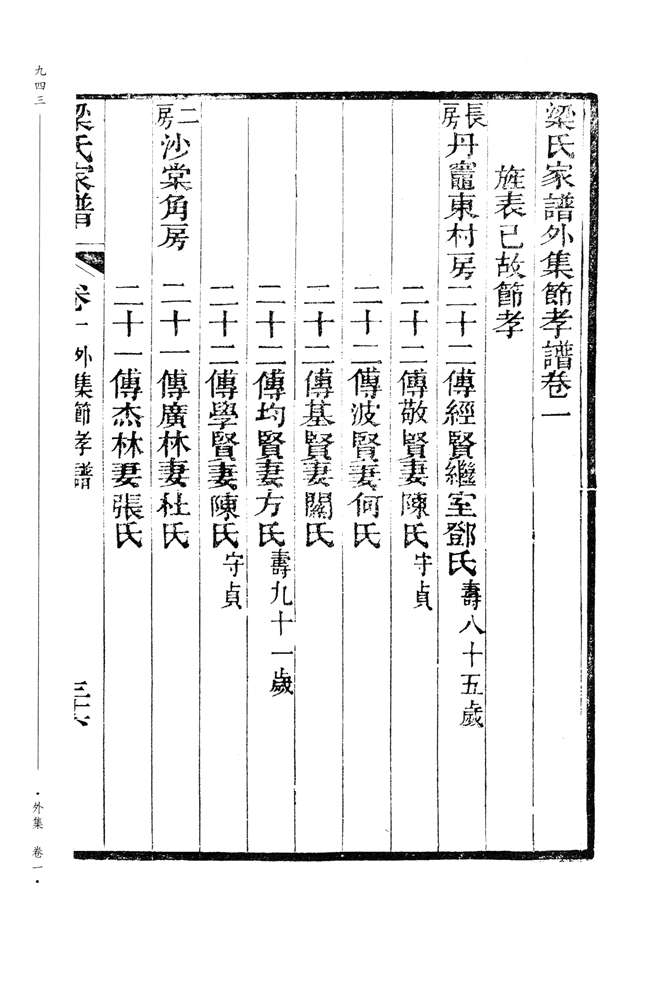 梁氏家譜外集節孝譜卷一
旌表已故節孝
長房丹竈東村房二十二傳經賢繼室鄧氏壽八十五歲
二十二傳敬賢妻陳氏守貞
二十二傳波賢妻何氏
二十二傳基賢妻關氏
二十二傳均賢妻方氏壽九十一歲
二十二傳學賢妻陳氏守貞
二房沙棠角房二十一傳廣林妻杜氏
二十一傳杰林妻張氏
梁氏家譜 卷一外集節孝譜 三十六
九四三
·外集 卷一·